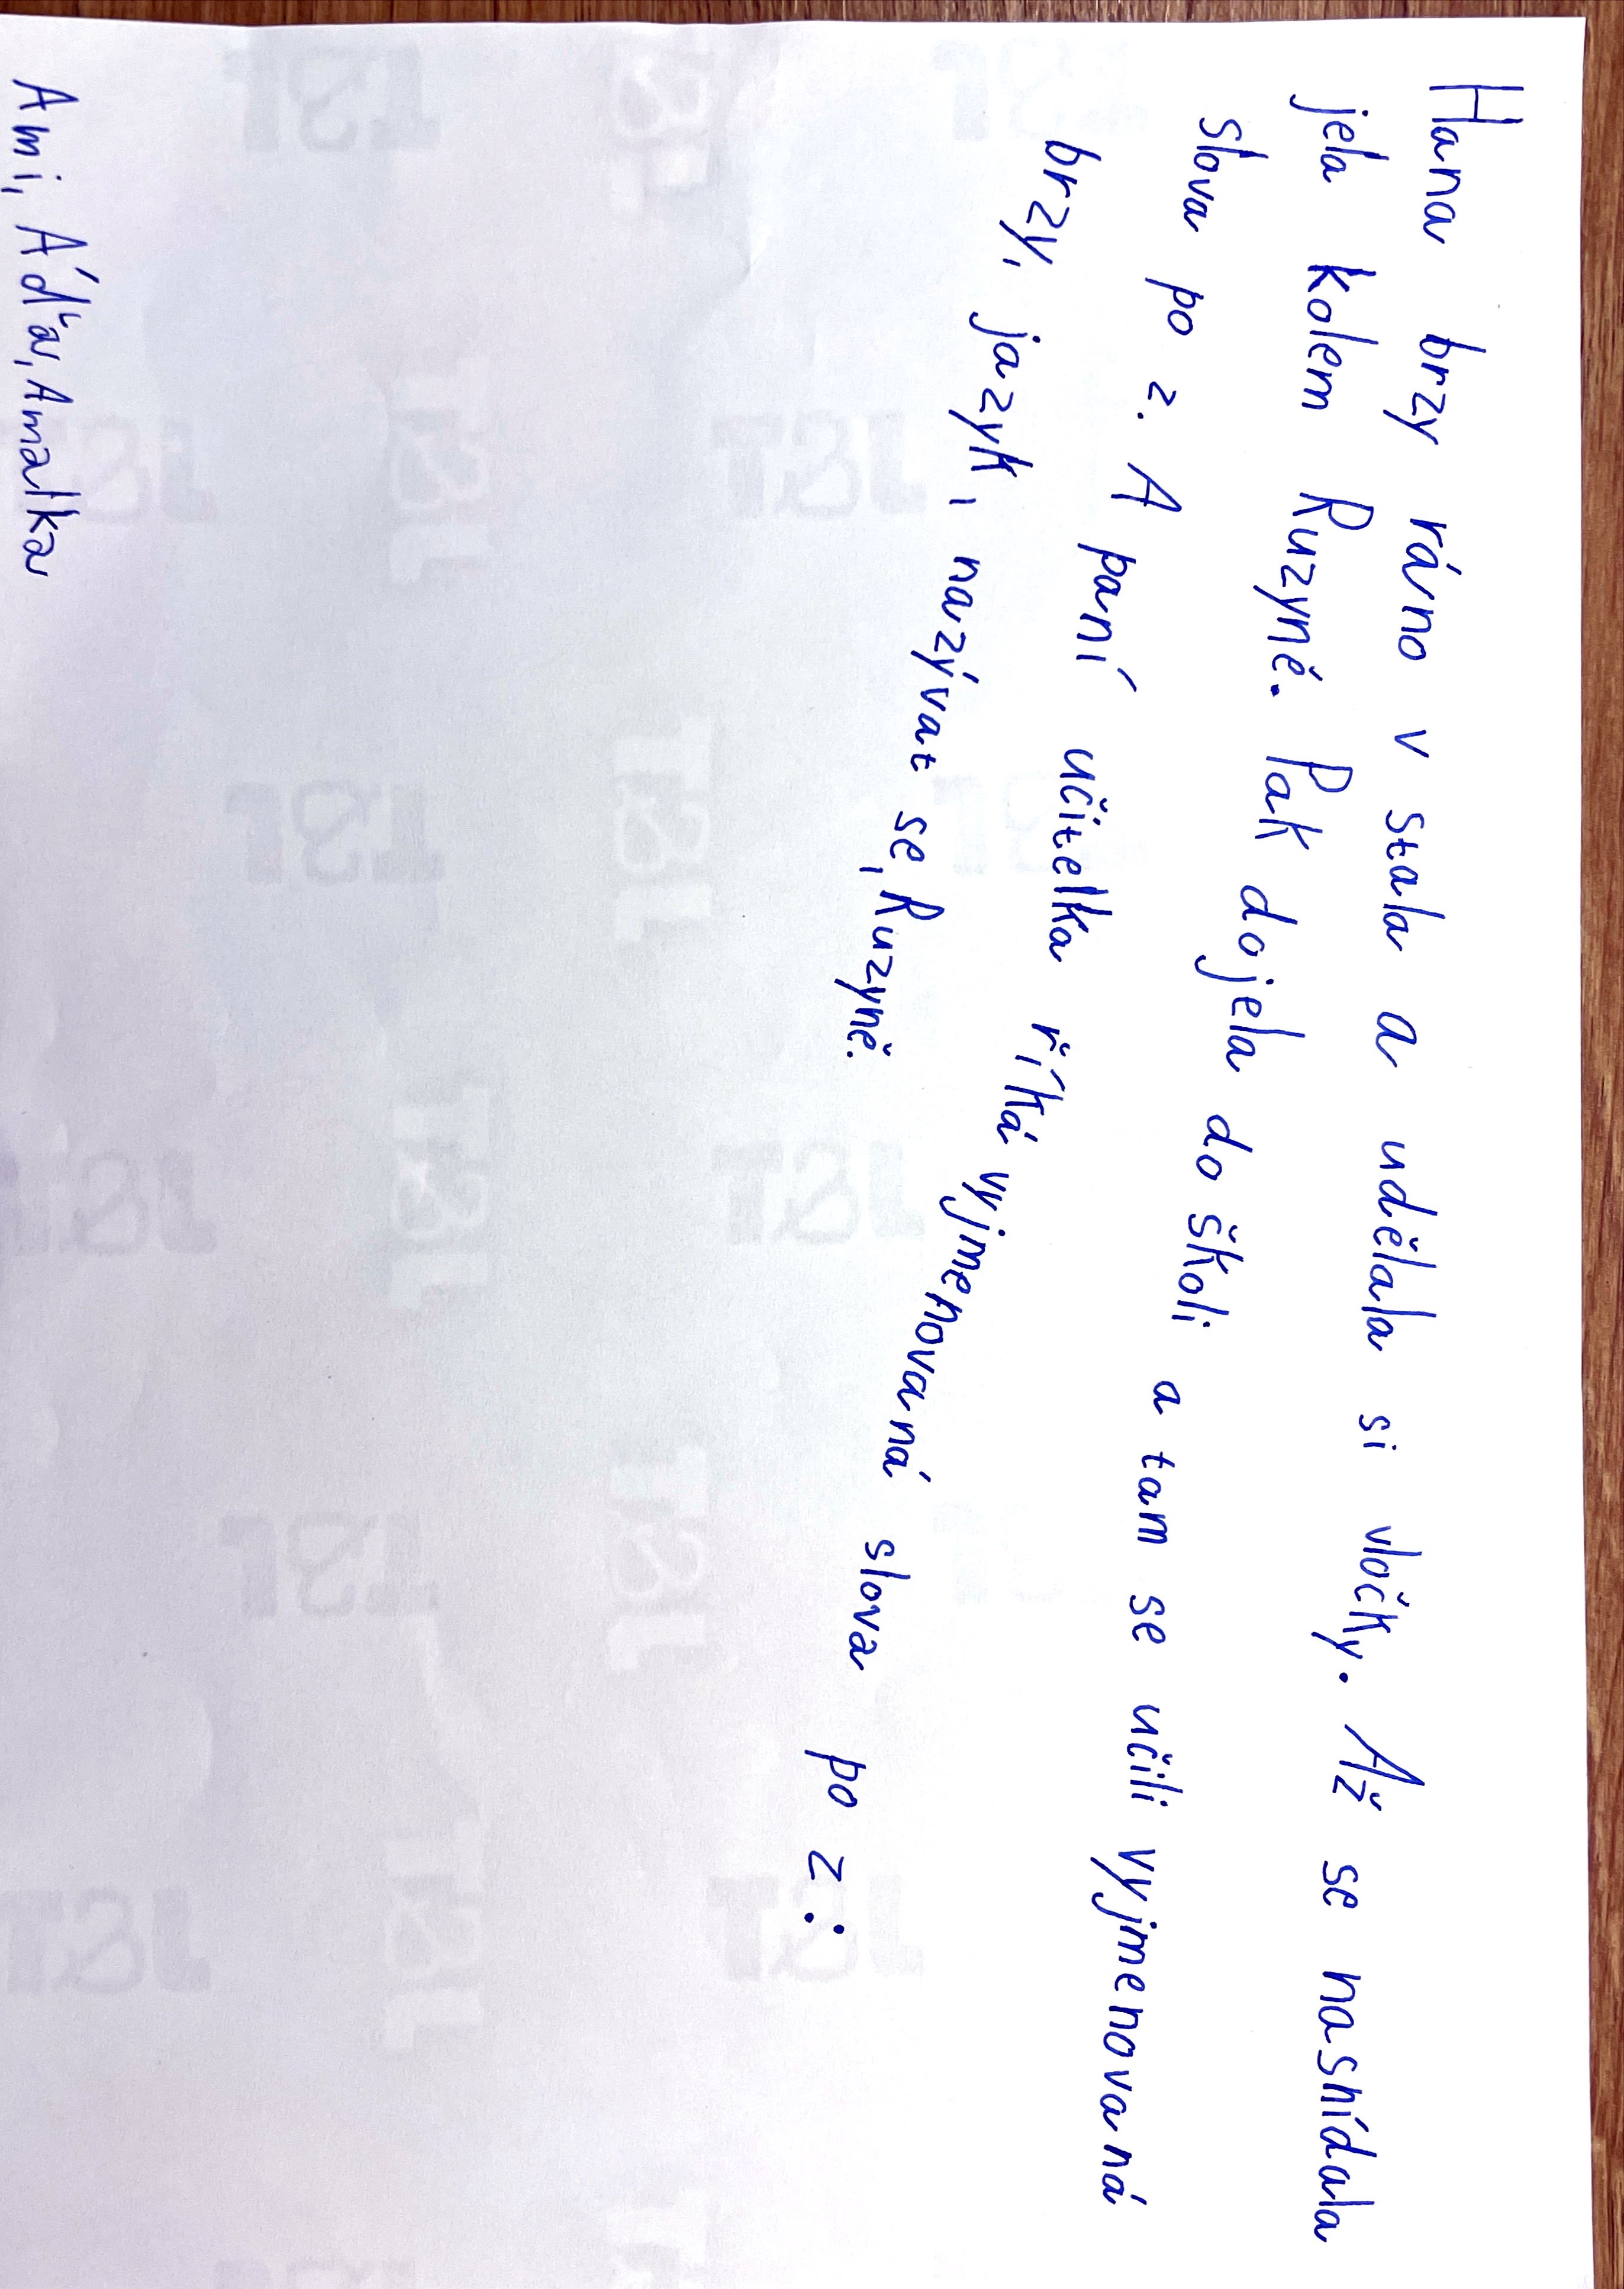 Hana brzy ráno v stala a udělala si vločky. Až se nasnídala
jela kolem Ruzyně. Pak dojela do školi a tam se učili vyjmenovaná
slova po z. A paní učitelka říká vyjmenovaná slova po z:
brzy, jazyk, nazývat se, Ruzyně.
Ami, Áďa, Amalka